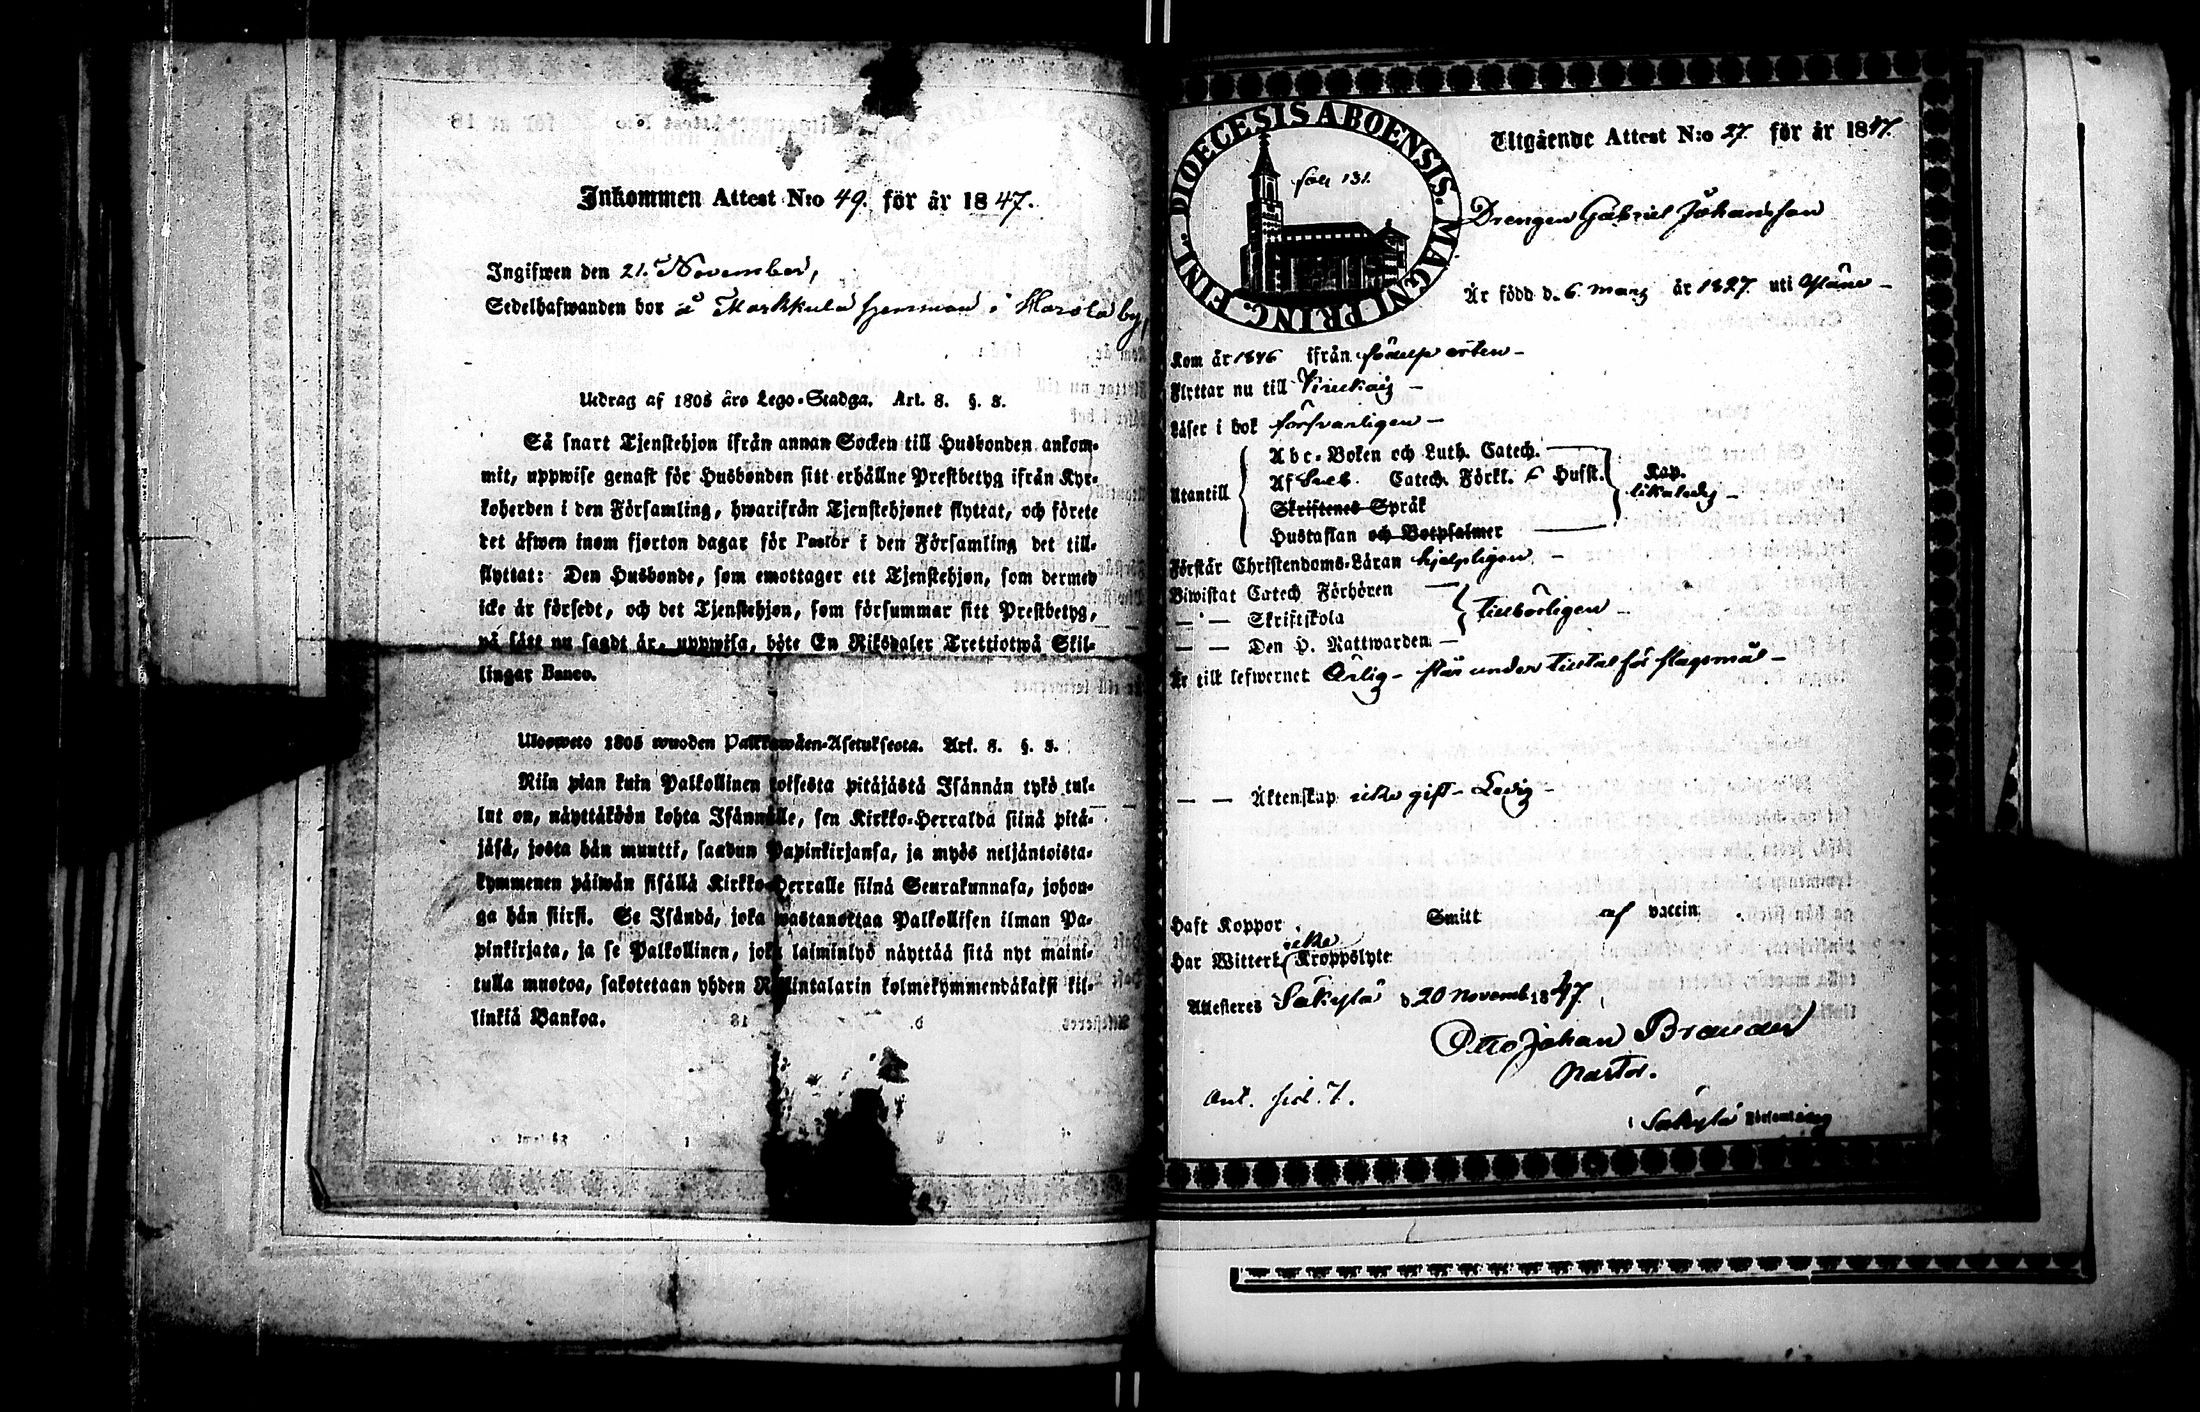 Inkommen Attest N:o 49. för år 1847.
Ingifwen den 21. November,
Sedelhafwanden bor å Markkula hemman i Harola by,
Utdrag af 1805 års Lego-Stadga. Art. 8. §. 8.
Så snart Tjenstehjon ifrån annan Socken till Husbonden ankom-
mit, uppwise genast för Husbonden sitt erhållne Prestbetyg ifrån Kyr-
koherden i den Församling, hwarifrån Tjenstehjonet flyttat, och förete
det äfwen inom fjorton dagar för Pastor i den Församling det till-
flyttat: Den Husbonde, som emottager ett Tjenstehjon, som dermed
icke är försedt, och det Tjenstehjon, som försummar sitt Prestbetyg,
på sätt nu sagdt är, uppwisa, böte En Riksdaler Trettiotwå Skil-
lingar Banco.
Ulosweto 1805 wuoden Palkkawäen-Asetuksesta. Art. 8. §. 8.
Niin pian kuin Palkollinen toisesta pitäjästä Isännän tykö tul-
lut on, näyttäköön kohta Isännälle, sen Kirkko-Herralda siinä pitä-
jäsä, josta hän muutti, saadun Papinkirjansa, ja myös neljäntoista-
kymmenen päiwän sisällä Kirkko-Herralle siinä Seurakunnasa, johon-
ga hän siirsi. Se Isändä, joka wastanottaa Palkollisen ilman Pa-
pinkirjata, ja se Palkollinen, joka laiminlyö näyttää sitä nyt maini-
tulla muotoa, sakotetaan yhden Riksintalarin kolmekymmendäkaksi kil-
linkiä Bankoa.
DIOECESIS ABOENSIS. MAGNI PRINC. FINL.
foli 131.
Utgående Attest N:o 27. för år 1847.
Drengen Gabriel Johansson
Är född d. 6. Mars år 1827. uti
Kom år 1846 ifrån födelseorten -
Flyttar nu till -
Läser i bok försvarligen -
Utantill
Abc-Boken och Luth. Catech.
Af Sveb. Catech. Förkl. 6 Hufst.
Skriftenes Språk
Hustaflan och Botpsalmer
Kap.
likaledes -
Förstår Christendoms-Läran hjelpligen. -
Biwistat Catech Förhören -
— — Skriftskola
— — Den H. Nattwarden -
tillbörligen -
Är till lefwernet Ärlig - står under tilltal för slagsmål -
— — Äktenskap icke gift - Ledig -
Haft Koppor Smitt af vaccin
Har Witterl. icke Kroppslyte
Attesteras Säkylä d 20 Novemb. 1847.
Otto Johan Brander
Pastor.
Ant. sid. 7.
i Säkylä Församling